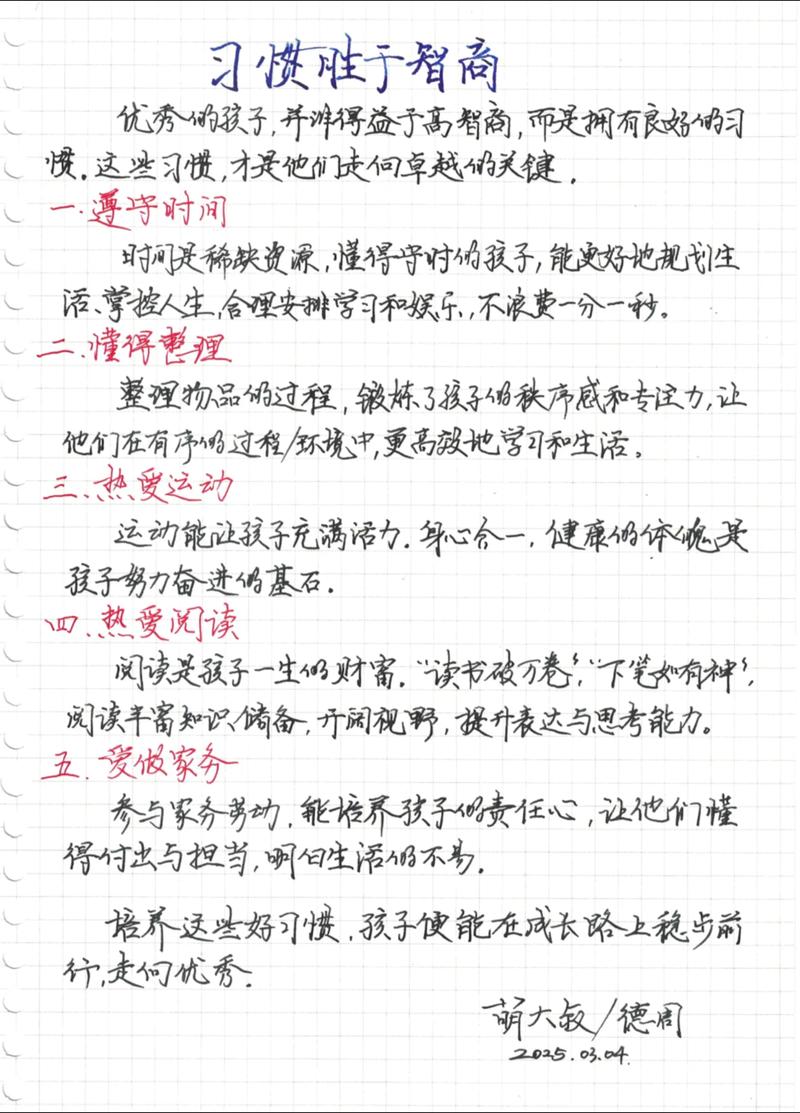 习惯胜于智商
优秀的孩子,并非得益于高智商,而是拥有良好的习
惯.这些习惯,才是他们走向卓越的关键.
一.遵守时间
时间是稀缺资源,懂得守时的孩子,能更好地规划生
活、掌控人生,合理安排学习和娱乐,不浪费一分一秒。
二.懂得整理
整理物品的过程,锻炼了孩子的秩序感和专注力,让
他们在有序的过程/环境中,更高效地学习和生活。
三.热爱运动
运动能让孩子充满活力.身心合一.健康的体魄是
孩子努力奋进的基石.
四.热爱阅读
阅读是孩子一生的财富.“读书破万卷”,“下笔如有神”,
阅读丰富知识储备,开阔视野,提升表达与思考能力。
五.爱做家务
参与家务劳动,能培养孩子的责任心,让他们懂
得付出与担当,明白生活的不易.
培养这些好习惯,孩子便能在成长路上稳步前
行,走向优秀.
萌大叔/德周
2025.03.04.